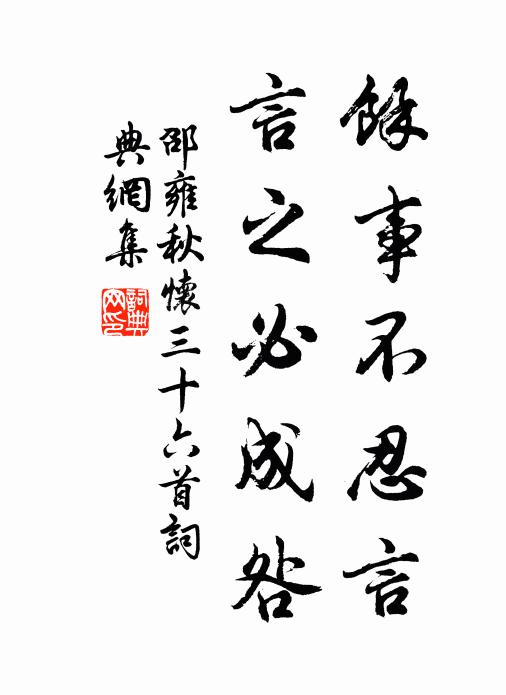 餘事不忍言
言之必成咎
邵雍秋懷三十六首詞
典網集
詞典
网印